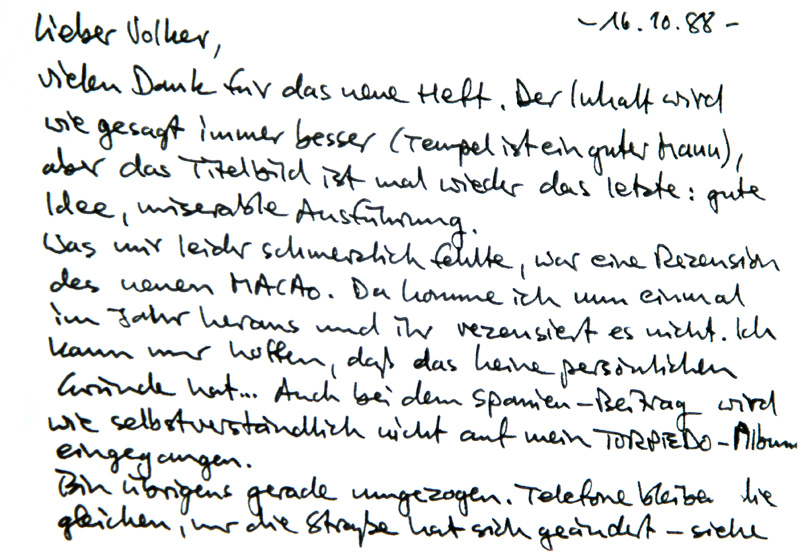 - 16.10.88 -
Lieber Volker,
vielen Dank für das neue Heft. Der Inhalt wird
wie gesagt immer besser (Tempel ist ein guter Mann),
aber das Titelbild ist mal wieder das letzte: gute
Idee, miserable Ausführung.
Was mir leider schmerzlich fehlte, war eine Rezension
des neuen MACAO. Da komme ich nun einmal
im Jahr heraus und ihr rezensiert es nicht. Ich
kann nur hoffen, daß das keine persönlichen
Gründe hat... Auch bei dem Spanien-Beitrag wird
wie selbstverständlich nicht auf mein TORPEDO-Album
eingegangen.
Bin übrigens gerade umgezogen. Telefone bleiben die
gleichen, nur die Straße hat sich geändert - siehe